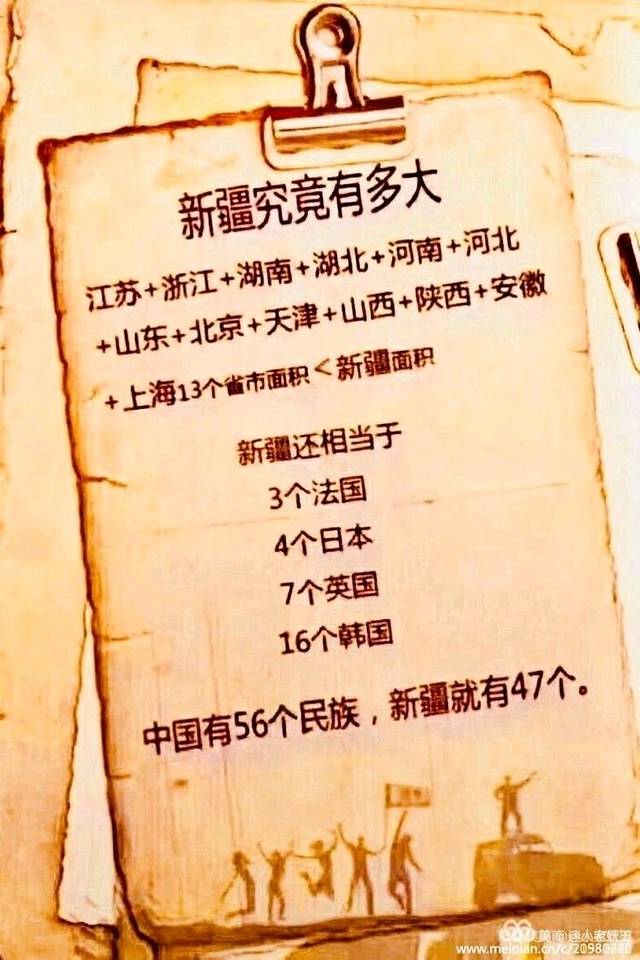 新疆究竟有多大
江苏+浙江+湖南+湖北+河南+河北
+山东+北京+天津+山西+陕西+安徽
+上海13个省市面积<新疆面积
新疆还相当于
3个法国
4个日本
7个英国
16个韩国
中国有56个民族，新疆就有47个。
www.meipian.cn/c/20980